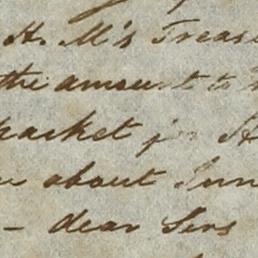 H. M's Treas
the amount to
packet for H
about
— dear Sirs